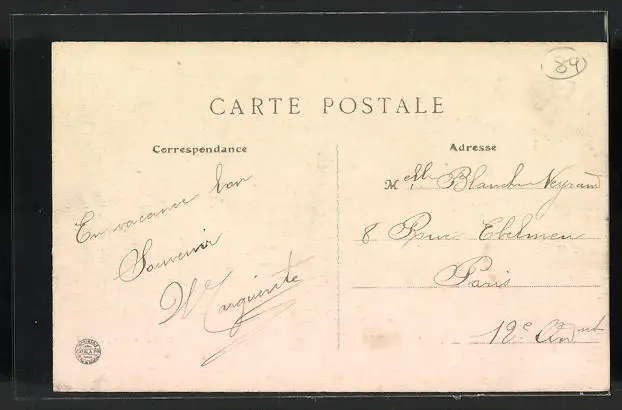 89
CARTE POSTALE
Correspondance
Adresse
En vacance bon
Souvenir
Marguerite
Melle Blanche Neyrand
8 Rue Ebelmen
Paris
12e Arr